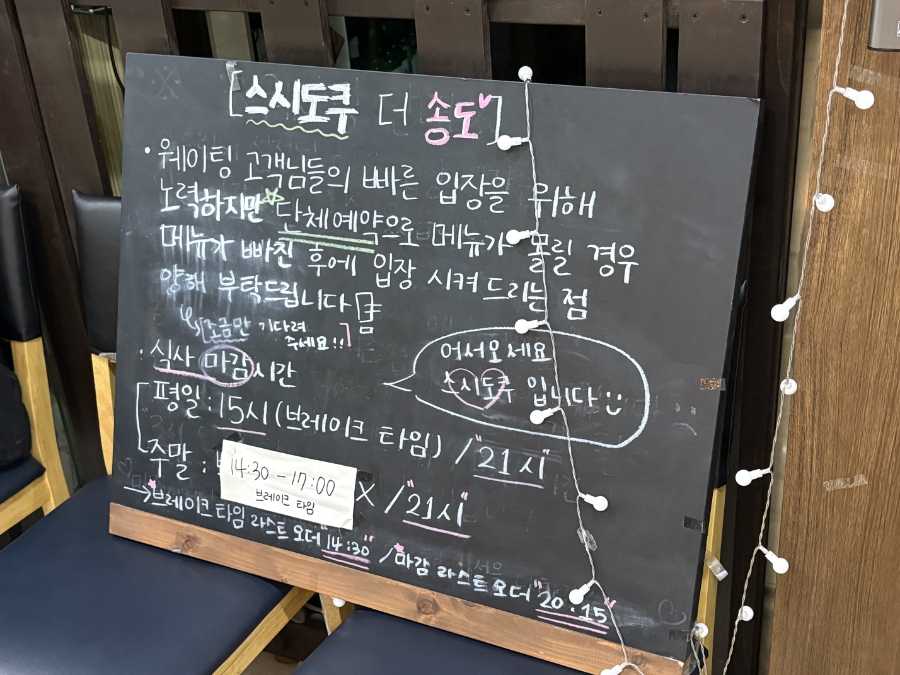 [스시도쿠 더 송도]
· 웨이팅 고객님들의 빠른 입장을 위해
노력하지만 단체예약으로 메뉴가 몰릴 경우
메뉴가 빠진 후에 입장 시켜 드리는 점
양해 부탁드립니다
조금만 기다려
주세요!!
어서오세요
스시도쿠 입니다
· 식사 마감시간
평일 : 15시 (브레이크 타임) / "21시"
주말 :
14:30 - 17:00
브레이크 타임
X / "21시"
→ 브레이크 타임 라스트 오더 "14:30" / 마감 라스트 오더 "20:15"